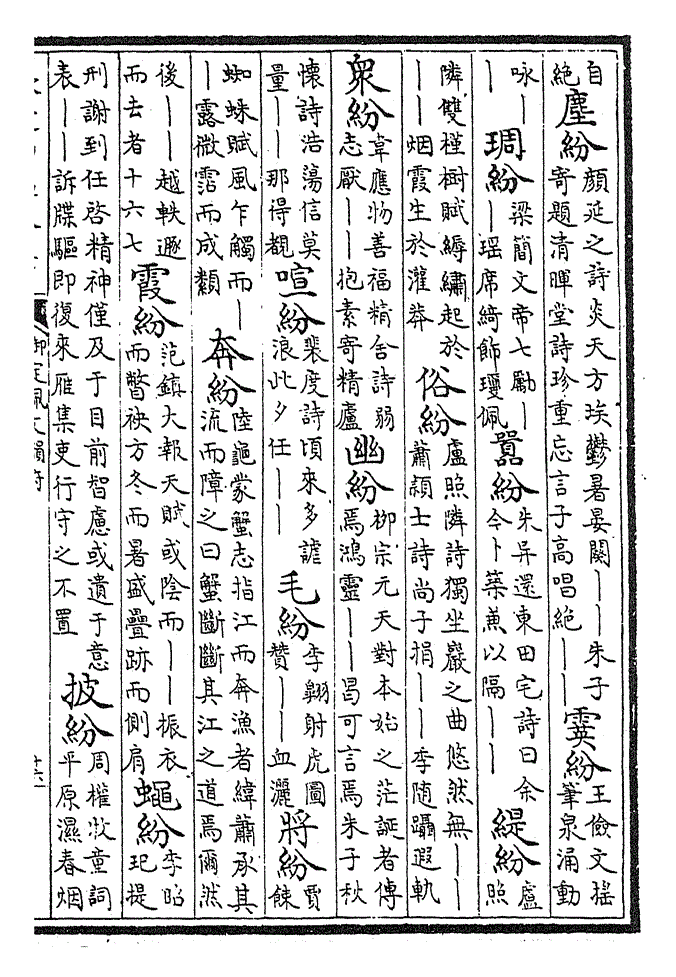 自絶塵紛顔延之詩炎天方埃鬱暑晏闋――朱子寄題清暉堂詩珍重忘言子高唱絶――霙紛王儉文瑤筆泉涌動
咏――琱紛梁簡文帝七勵――瑶席綺飾瓊佩囂紛朱异還東田宅詩曰余今卜築兼以隔――緹紛盧照
隣雙槿樹賦縟繡起於――烟霞生於灌莽俗紛盧照隣詩獨坐巖之曲悠然無――蕭頴士詩尚子捐――李随躡遐軌
衆紛韋應物善福精舍詩弱志厭――抱素寄精廬幽紛栁宗元天對本始之茫誕者傳焉鴻靈――曷可言焉朱子秋
懐詩浩蕩信莫量――那得覩喧紛裴度詩頃來多謔浪此夕任――毛紛李翺射虎圖賛――血灑將紛賈餗
蜘蛛賦風乍觸而――露微霑而成纇奔紛陸龜蒙蟹志指江而奔漁者緯蕭承其流而障之曰蟹斷斷其江之道焉爾然
後――越軼遯而去者十六七霞紛范鎮大報天賦或陰而――振衣而瞥袂方冬而暑盛疊跡而側肩蠅紛李昭𤣱提
刑謝到任啓精神僅及于目前智慮或遺于意表――訴牒驅即復來雁集吏行守之不置披紛周權牧童詞平原濕春烟
御定佩文韻府